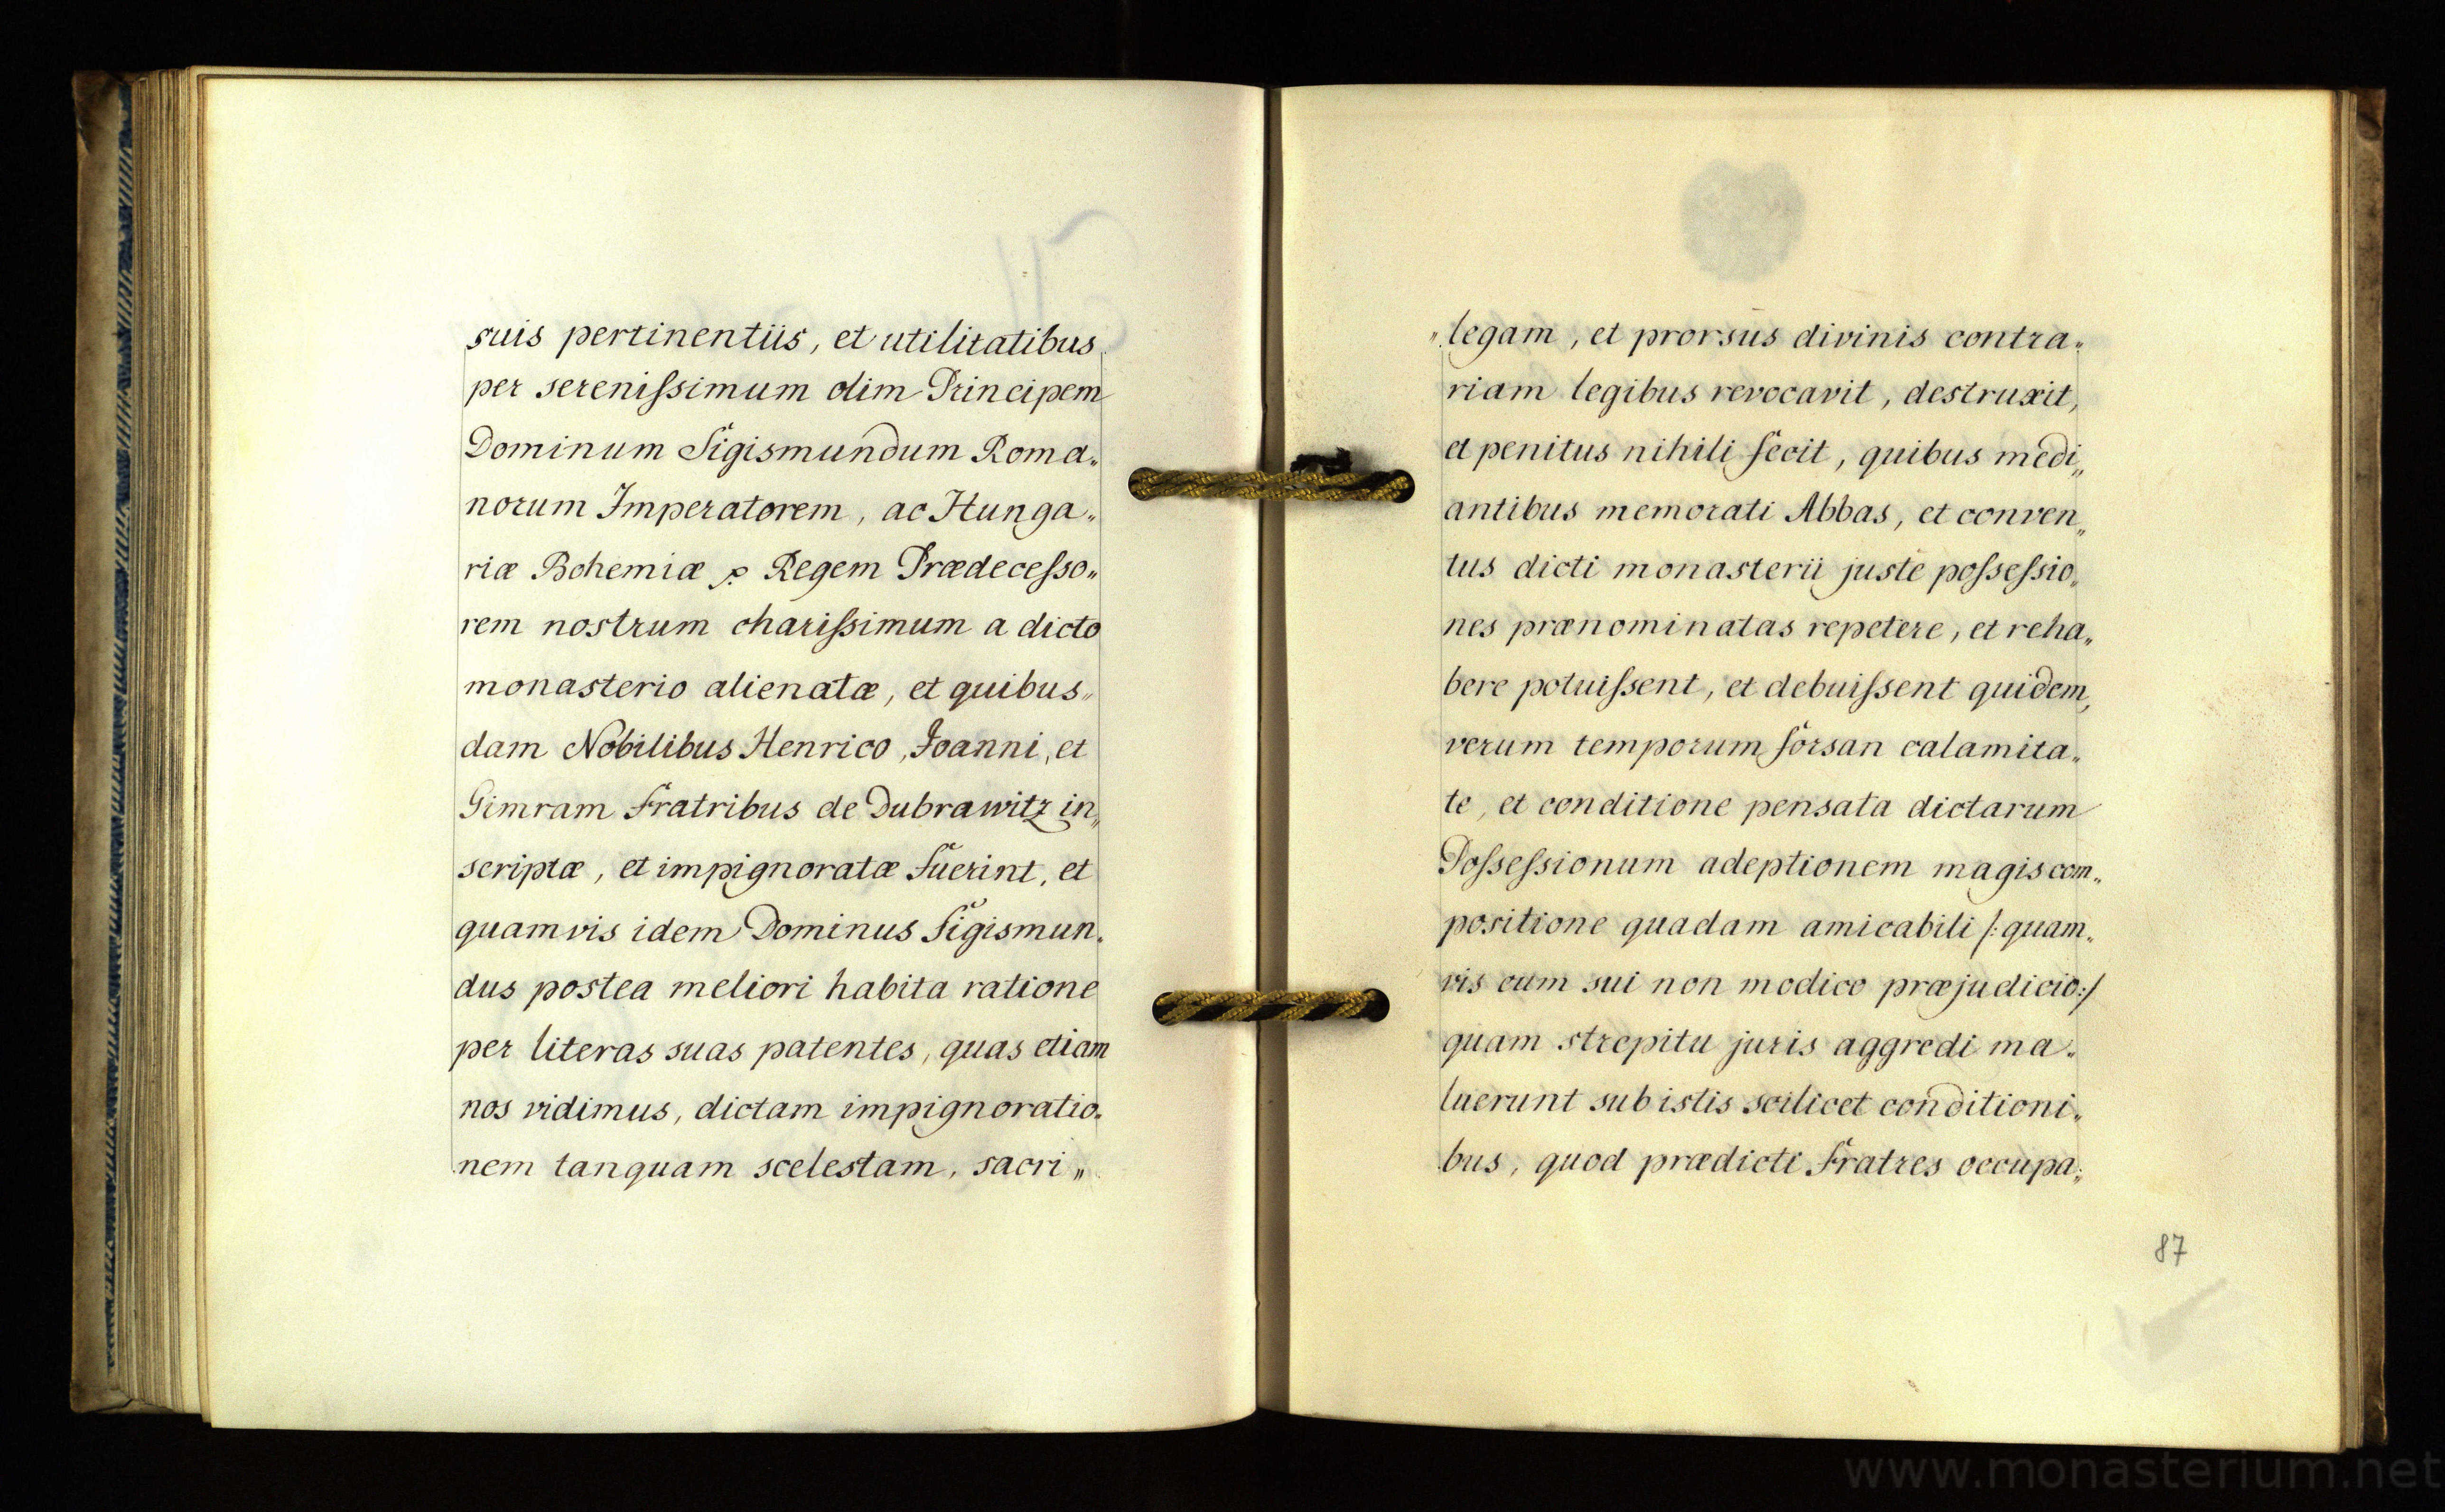 suis pertinentiis, et utilitatibus
per sereniſsimum olim Principem
Dominum Sigismundum Roma„
norum Imperatorem, ac Hunga„
riæ Bohemiæ Regem Prædeceſso„
rem nostrum chariſsimum a dicto
monasterio alienatæ, et quibus„
dam Nobilibus Henrico, Joanni, et
Gimram Fratribus de Dubrawitz in„
scriptæ, et impignoratæ fuerint, et
quamvis idem Dominus Sigismun„
dus postea meliori habita ratione
per literas suas patentes, quas etiam
nos vidimus, dictam impignoratio„
nem tanquam scelestam, sacri„
„legam, et prorsus divinis contra„
riam legibus revocavit, destruxit,
et penitus nihili fecit, quibus medi„
antibus memorati Abbas, et conven„
tus dicti monasterii juste poſseſsio„
nes prænominatas repetere, et reha„
bere potuiſsent, et debuiſsent quidem,
verum temporum forsan calamita„
te, et conditione pensata dictarum
Poſseſsionum adeptionem magis com„
positione quadam amicabili /: quam„
vis cum sui non modico præjudicio :/
quam strepitu juris aggredi ma„
luerunt sub istis scilicet conditioni„
bus, quod prædicti Fratres occupa„
87
www.monasterium.net